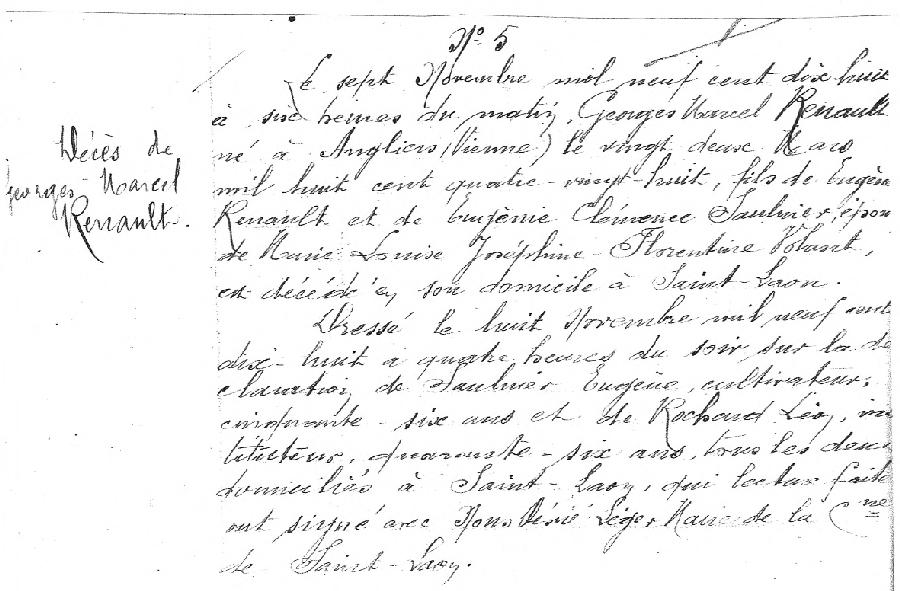 N° 5
Le sept Novembre mil neuf cent dix huit
à six heures du matin, Georges Marcel Renault
né à Angliers (Vienne) le vingt deux Mars
mil huit cent quatre-vingt-huit, fils de Eugène
Renault et de Eugènie Clémence Saulnier, épou
de Marie Louise Joséphine Florentine Volant,
est décédé en son domicile à Saint-Laon.
Décès de
Georges-Marcel
Renault.
Dressé le huit Novembre mil neuf cent
dix-huit à quatre heures du soir, sur la dé
claration de Saulnier Eugène, cultivateur,
cinquante-six ans et de Rochard Léon, ins
tituteur, quarante-six ans, tous les deux
domiciliés à Saint-Laon, qui lecture faite
ont signé avec Nous Désiré Léger Maire de la Cne
de Saint-Laon.